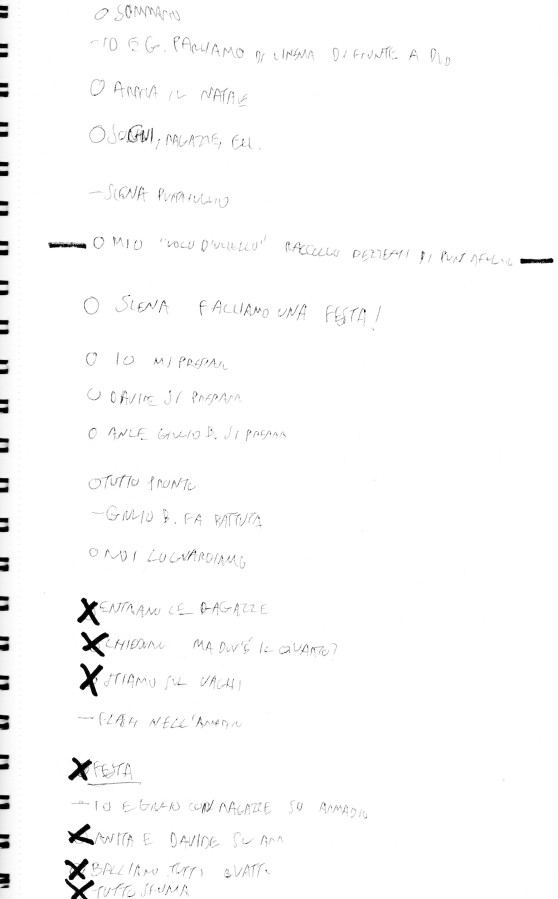 O SOMMARIO
- IO E G. PARLIAMO DI CINEMA DI FRONTE A DVD
O ARRIVA IL NATALE
O SOGNI, RAGAZZE, ECC.
- SCENA
O MIO "VOLO D'UCCELLO" RACCOLGO PEZZETTI DI
O SCENA FACCIAMO UNA FESTA!
O IO MI PREPARO
O DAVIDE SI PREPARA
O ANCHE GIULIO B. SI PREPARA
O TUTTO PRONTO
- GIULIO B. FA BATTUTA
O NOI LO GUARDIAMO
X ENTRANO LE RAGAZZE
X CHIEDONO MA DOV'È IL QUARTO?
X STIAMO SUL VAGHI
- FLASH NELL'ARMADIO
X FESTA
- IO E CON RAGAZZE SU ARMADIO
X ANITA E DAVIDE SU ARM
X BALLIAMO TUTTI QUATTRO
X TUTTO SFUMA